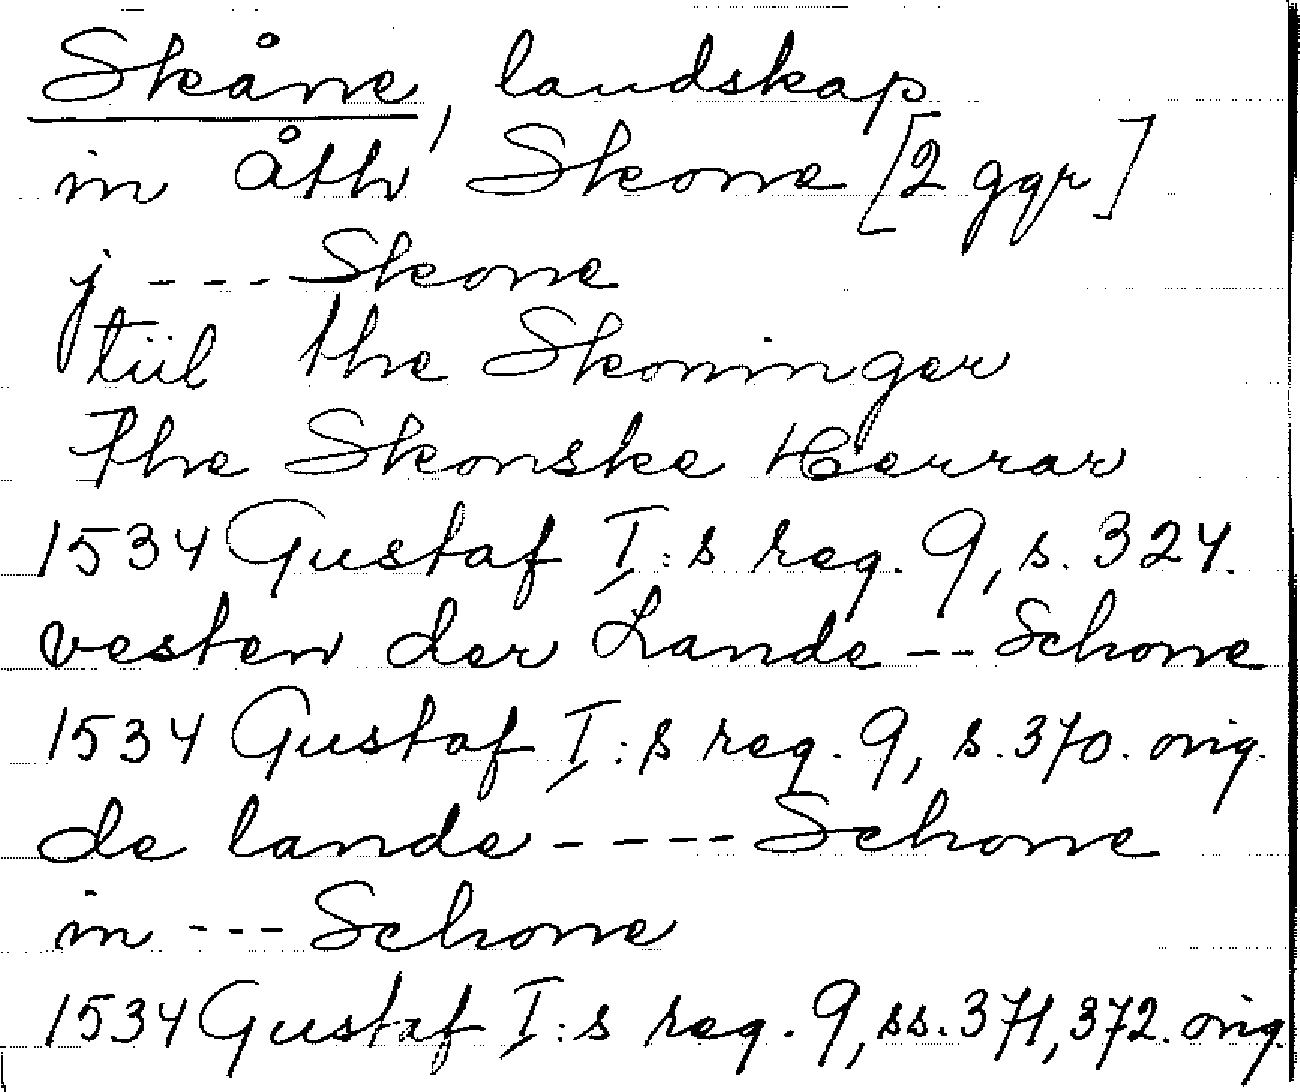 Skåne, landskap
in åth Skone [2 ggr]
j --- Skone
tiil the Skoninger
the Skonske Herrar
1534 Gustaf I:s reg. 9, s. 324.
vesten der Lande -- Schone
1534 Gustaf I:s reg. 9, s. 370. orig.
de lande ---- Schone
in --- Schone
1534 Gustaf I:s reg. 9, ss. 371, 372. orig.